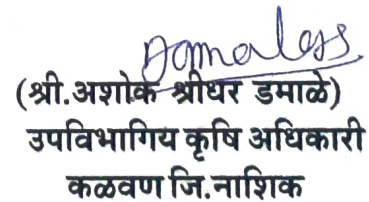 (श्री.अशोक श्रीधर डमाळे)
उपविभागिय कृषि अधिकारी
कळवण जि.नाशिक